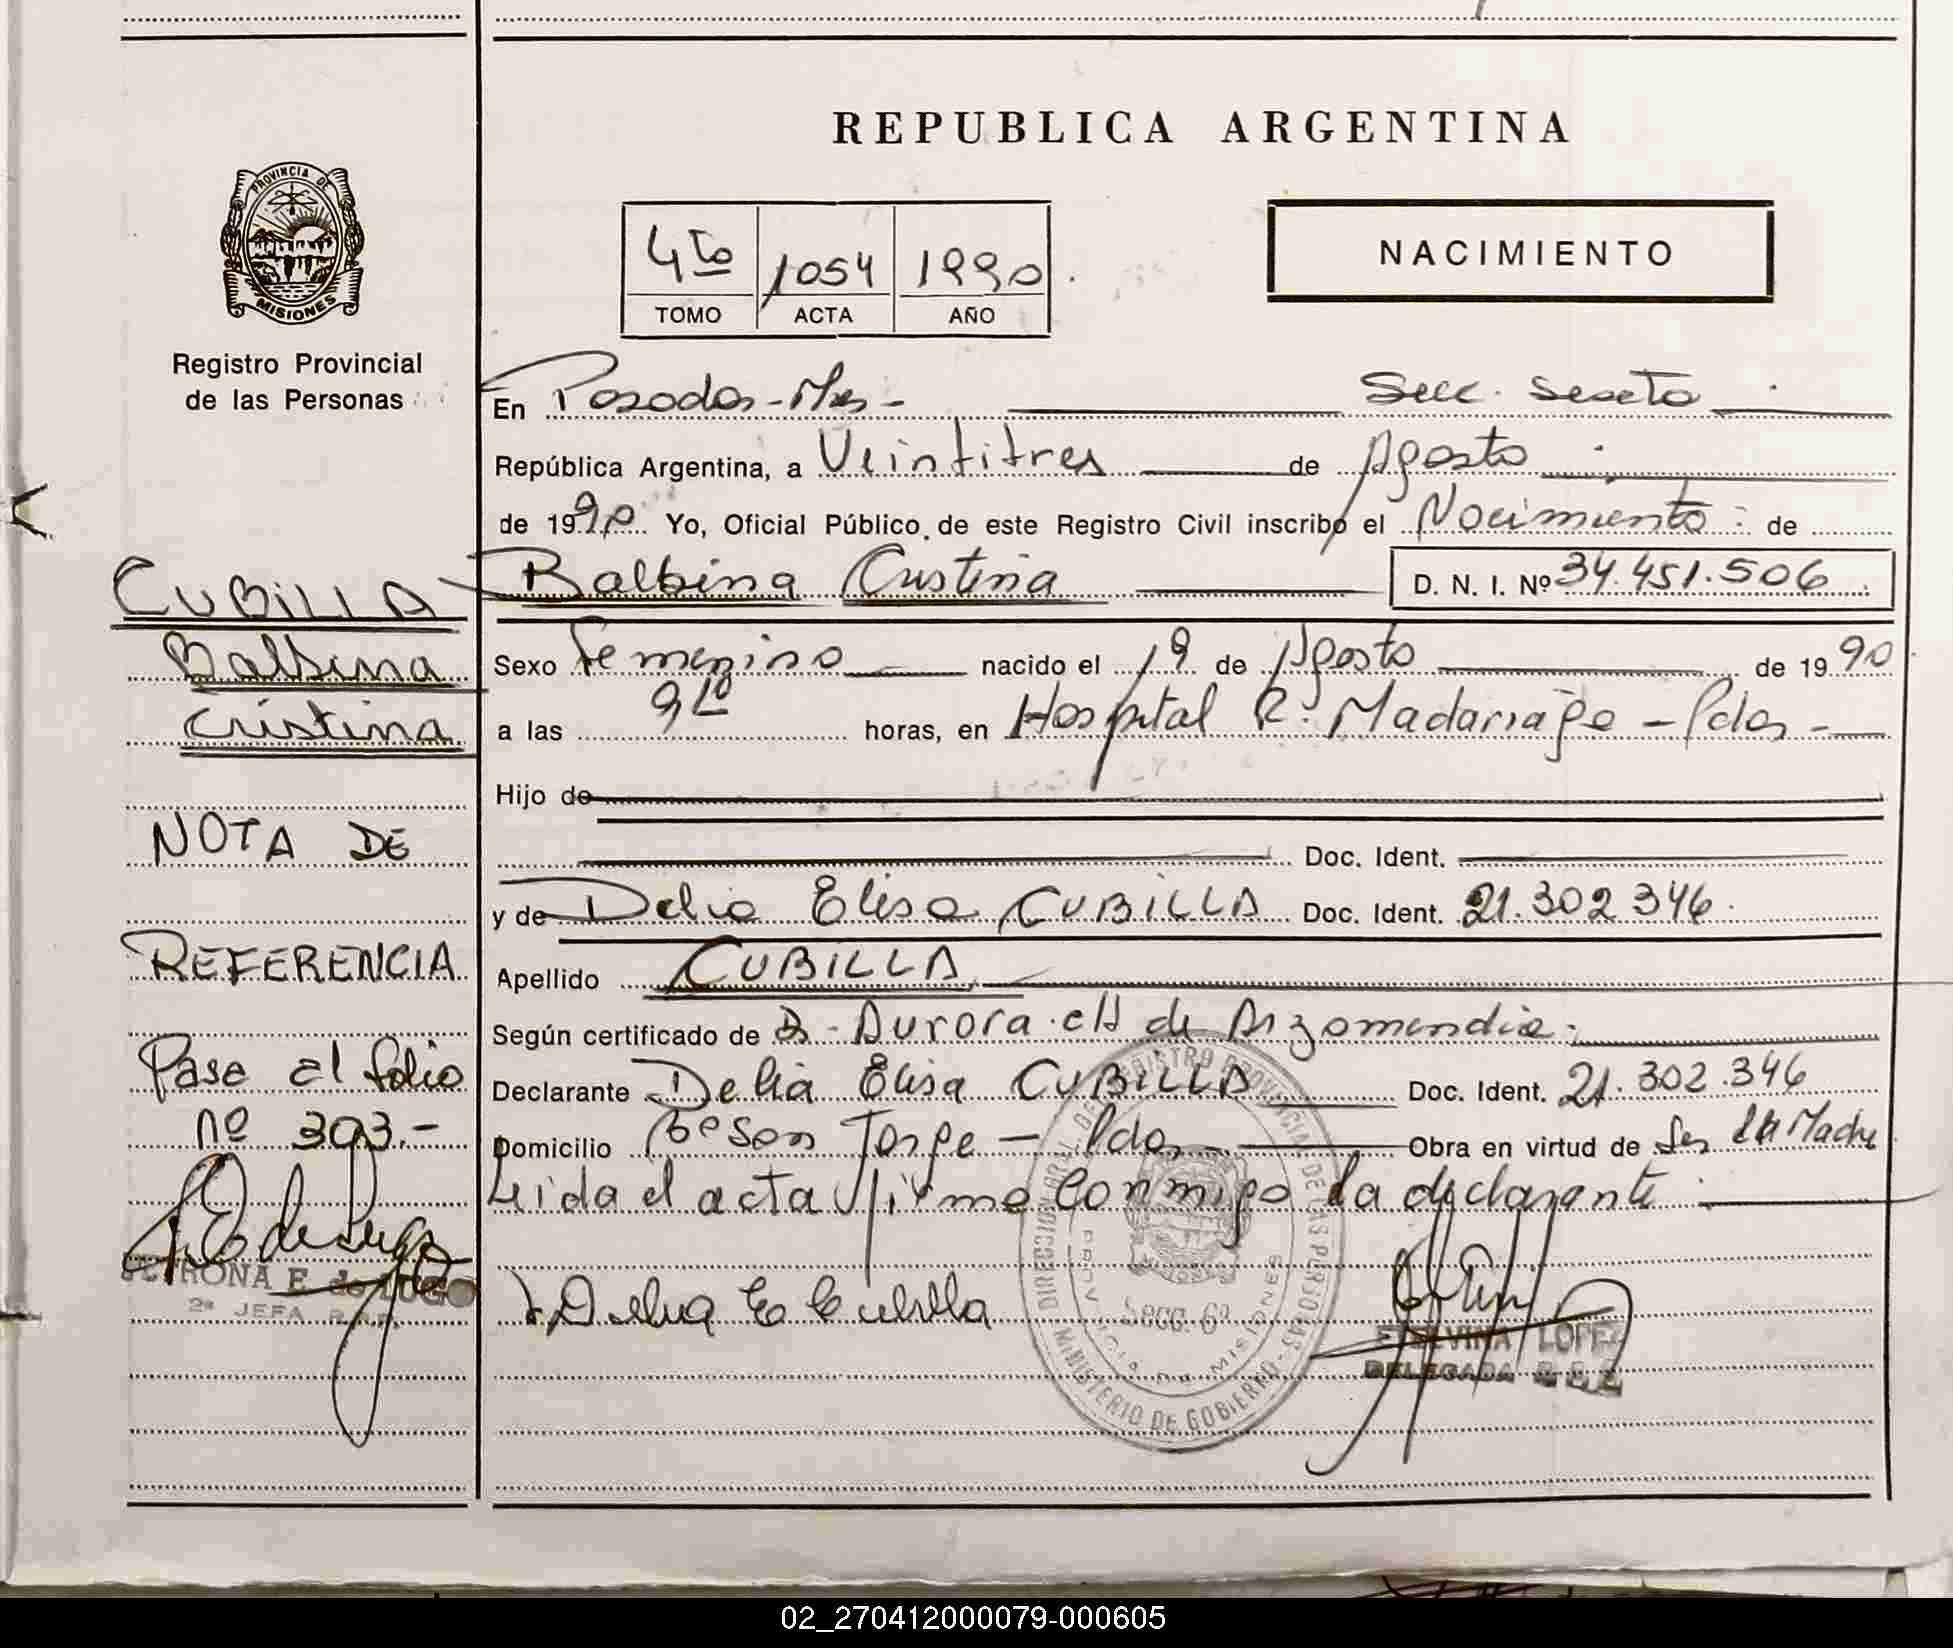 REPUBLICA ARGENTINA
PROVINCIA DE
MISIONES
Registro Provincial
de las Personas
4to 1054 1990
TOMO ACTA AÑO
NACIMIENTO
En Posadas - Mnes - Secc. Sexta
República Argentina, a Veintitres de Agosto
de 1990 Yo, Oficial Público de este Registro Civil inscribo el Nacimiento de
Balbina Cristina D. N. I. Nº 34.451.506
Sexo Femenino nacido el 19 de Agosto de 1990
a las 9 10 horas, en Hospital R. Madariaga - Pdas -
Hijo de
Doc. Ident.
y de Delia Elisa CUBILLA Doc. Ident. 21.302.346
Apellido CUBILLA
Según certificado de Aurora de Arzamendia
Declarante Delia Elisa CUBILLA Doc. Ident. 21.302.346
Domicilio Jorge - Pdas - Obra en virtud de Ser la Madre
Leida el acta firma conmigo la declarante
Delia E Cubilla
CUBILLA
Balbina
Cristina
NOTA DE
REFERENCIA
Pase al folio
nº 393.-
PETRONA E. de LUGO
2ª JEFA R.P.P.
DIRECCION GRAL. DEL REGISTRO PROVINCIAL DE LAS PERSONAS - MINISTERIO DE GOBIERNO
PROVINCIA DE MISIONES
Secc. 6ª
LOPEZ
DELEGADA
02_270412000079-000605